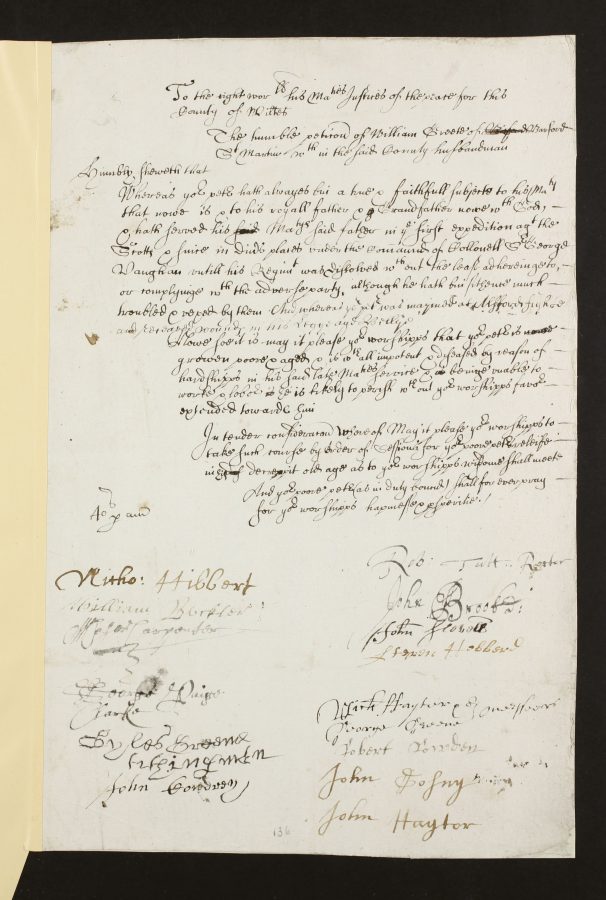 To the right wor ll his Ma ties Justices of the peace for this
County of Wiltes
The humble peticon of William Breete of Barford
St Martin w th in the said County husbandman
Humbly sheweth that
Whereas yo r pet r hath alwayes bin a true & faithfull subject to his Ma ty
that nowe is & to his royall father & Grandfather nowe w th God,
& hath served his Ma ties said father in ye first expedition ag t the
Scotts & since in divers places under the Comaund of Collonell S r George
Vaughan untill his Regim t was disolved w th out the least adhereinge to,
or complyinge w th the adverse party, although he hath bin sithence much
troubled & by them And whereas yo r pet r was maymed at
and received wounds in his Legge and Belly
Howe soe it is may it please yo r worshipps that yo r pet r is
growen poore & aged & is w th all impotent & diseased by reason of
hardshipps in his said late Ma ties service & beinge unable to
worke & is likely to perish w th out yo r worshipps favo r
extended towards him
In tender consideracon whereof May it please yo r worshipps to
take such course by order of Sessions for yo r poore pet rs releife
in decrepit old age as to yo r worshipps wisdome shall meete
And yo r poore pet r as in duty bound shall for ever pray
for yo r worshipps happinesse & prosperitie
40s p ann
Nicho: Hibbert
William Buckler
Carpenter
George Paige
Clarke
Gyles Greene
tithingman
John Cowdrey
Rob: Tutt: Rector
John Brooke
John
Steven Hobberd
Nich: Haytor overseers
George Greene
Robert Bowden
John
John Haytor
136